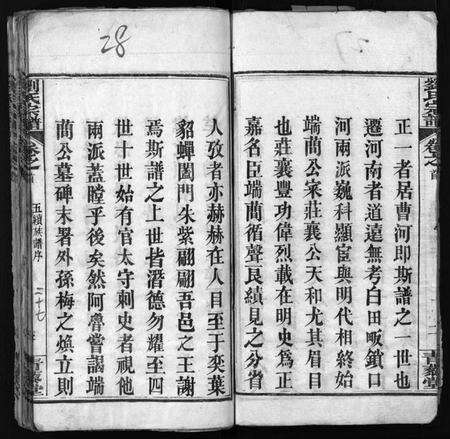 正一者居曹河即斯譜之一世也
遷河南者道遠無考白田畈鎖口
河兩派巍科顯宦與明代相終始
端蘭公家莊襄公天和尤其眉目
也莊襄豐功偉烈載在明史爲正
嘉名臣端蘭循聲良績見之分省
人攷者亦赫赫在人目至于奕葉
貂蟬闔門朱紫翩翩吾邑之王謝
焉斯譜之上世皆潛德勿耀至四
世十世始有官太守刺史者視他
兩派蓋瞠乎後矣然阿膋嘗謁端
蘭公墓碑末署外孫梅之煥立則
劉氏宗譜
卷之首
劉氏宗譜
卷之首
五續族譜序
二十七
青藜堂
青藜堂
28